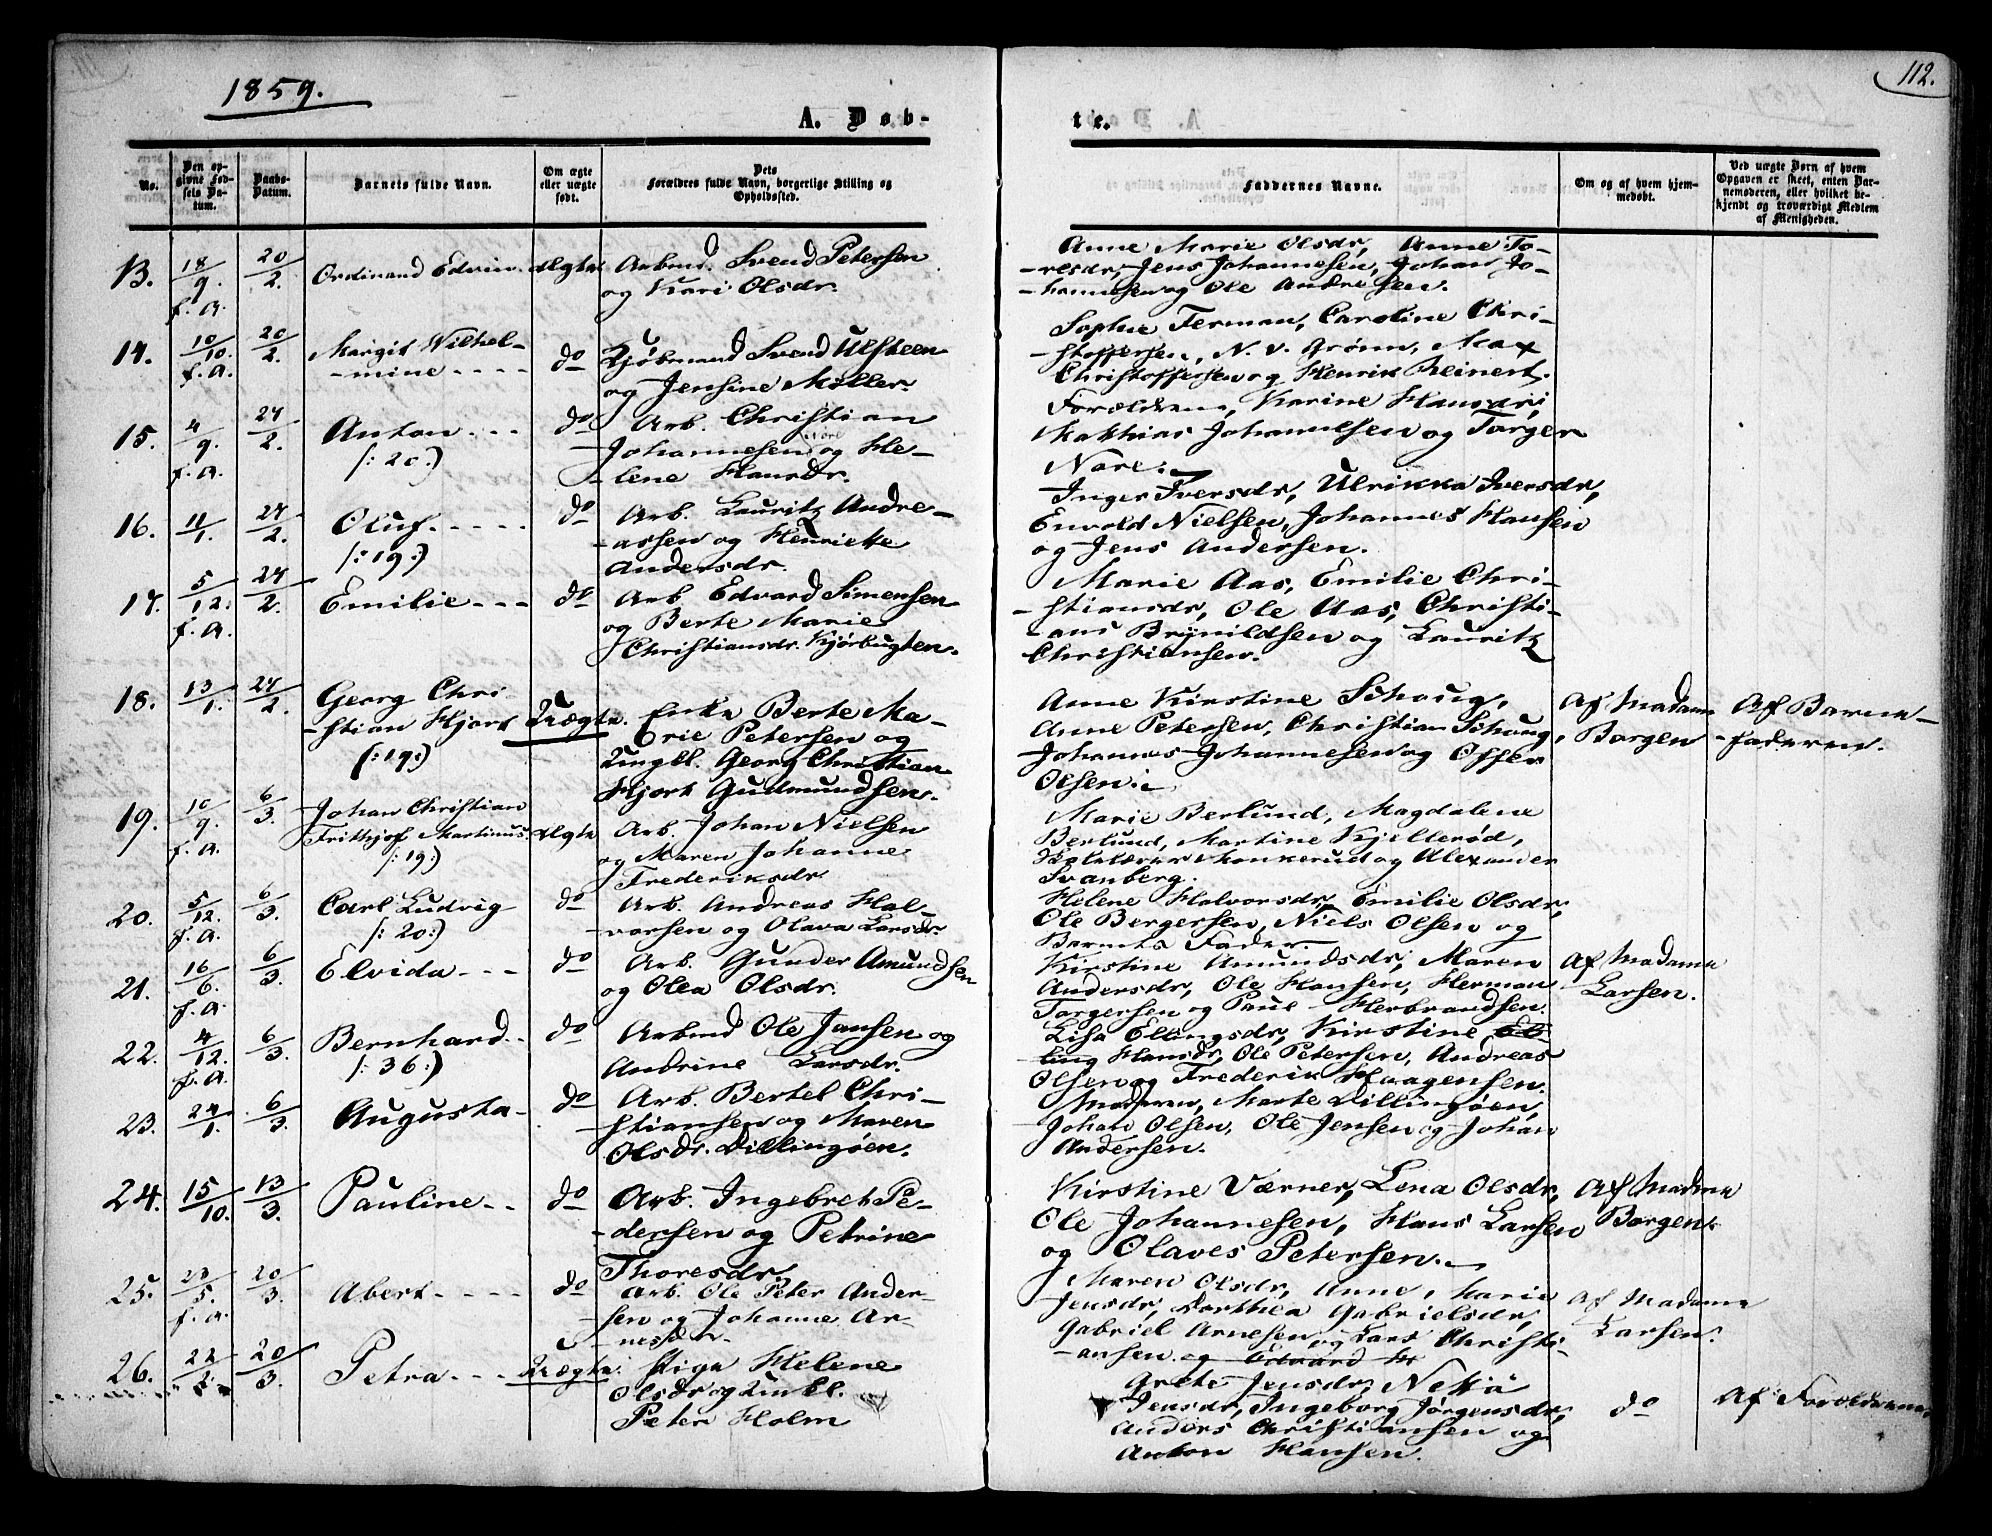 1859.
112.
A. Døb-
te.
No.
Den op-
givne Fød-
sels Da-
tum.
Daabs-
Datum.
Barnets fulde Navn.
Om ægte
eller uægte
født.
Dets
Forældres fulde Navn, borgerlige Stilling og
Opholdssted.
Faddernes Navne.
Om og af hvem hjem-
medøbt.
Ved uægte Børn af hvem
Opgaven er skeet, enten Bar-
nemoderen, eller hvilket be-
kjendt og troværdigt Medlem
af Menigheden.
13. 18/9. f. A. 20/2. Ordinand Edvin. Ægte Arbmd. Svend Petersen
og Kari Olsdr.
Anne Marie Olsdr, Anne To-
resdr, Jens Johannesen, Johan Jo-
hannesen og Ole Andresen.
14. 10/10. f. A. 20/2. Margit Wilhel-
mine do Kjøbmand Svend Ulsteen
og Jensine Møller.
Sophie Ferman, Caroline Chri-
stoffersen, N. v. Grønn, Max
Christoffersen og Henrik Reinert.
15. 4/9. f. A. 27/2. Anton
(: 20:) do Arb. Christian
Johannesen og He-
lene Hansdr.
Forældrene, Karine Hansdr,
Mathias Johannesen og Torger
Nare.
16. 11/1. 27/2. Oluf
(: 19:) do Arb. Lauritz Andre-
assen og Henrikke
Andersdr.
Inger Iversdr, Ulrikka Iversdr,
Envold Nielsen, Johannes Hansen
og Jens Andersen.
17. 5/12. f. A. 27/2. Emilie do Arb Edvard Simensen
og Berte Marie
Christiansdr. Kjørbugten.
Marie Aas, Emilie Chri-
stiansdr, Ole Aas, Christi-
ans Brynildsen og Lauritz
Christiansen.
18. 13/1. 27/2. Georg Chri
stian Hjort
(: 19:) Uægte. Enke Berte Ma-
rie Petersen og
Ungkl. Georg Christian
Hjort Gudmundsen.
Anne Kirstine Schoug,
Anne Petersen, Christian Schoug,
Johannes Johannesen og Offer
Olsen.
Af Madam
Borgen
Af Barne-
faderen.
19. 10/9. f. A. 6/3. Johan Christian
Frithjof Martinus.
(: 19:) Ægte Arb. Johan Nielsen
og Maren Johanne
Frederiksdr
Marie Berlund, Magdalene
Berlund, Martine Kjellerød,
Monkerud og Alexander
Svanberg.
20. 5/12. f. A. 6/3. Carl Ludvig
(: 20:) do Arb. Andreas Hal-
vorsen og Olava Larsdr.
Helene Halvorsdr, Emilie Olsdr,
Ole Bergersen, Niels Olsen og
Barnets Fader.
21. 16/6. f. A. 6/3. Elvida do Arb. Gunder Amundsen
og Olea Olsdr.
Kirstine Amundsdr, Maren
Andersdr, Ole Hansen, Herman
Torgersen og Paul Herbrandsen.
Af Madame
Larsen.
22. 4/12. f. A. 6/3. Bernhard
(: 36:) do Arbmd Ole Jansen og
Andrine Larsdr.
Lisa Ellingsdr, Kirstine El-
ling Hansdr, Ole Petersen, Andreas
Olsen og Frederik Haagensen.
23. 24/1. 6/3. Augusta do Arb. Bertel Chri-
stiansen og Maren
Olsdr. Dillingøen.
Moderen, Marte Dillingøen,
Johan Olsen, Ole Jensen og Johan
Andersen.
24. 15/10. 13/3. Pauline do Arb. Ingebret Pe-
dersen og Petrine
Thoresdr
Kirstine Værner, Lena Olsdr,
Ole Johannesen, Hans Larsen
og Olaves Petersen.
Af Madme
Borgen.
25. 23/5. f. A. 20/3. Abert do Arb. Ole Peter Ander-
sen og Johanne Ar-
nesdr.
Maren Olsdr, Anne Marie
Jensdr, Dorthea Gabrielsdr,
Gabriel Arnesen og Lars Christi-
ansen. og Edvard
Af Madame
Larsen.
26. 22/2 20/3. Petra Uægte. Pige Helene
Olsdr og Unkl.
Peter Holm
Grete Jensdr,
Jensdr, Ingeborg Jørgensdr,
Anders Christiansen og
Anton Hansen.
do
Af Forældrene.